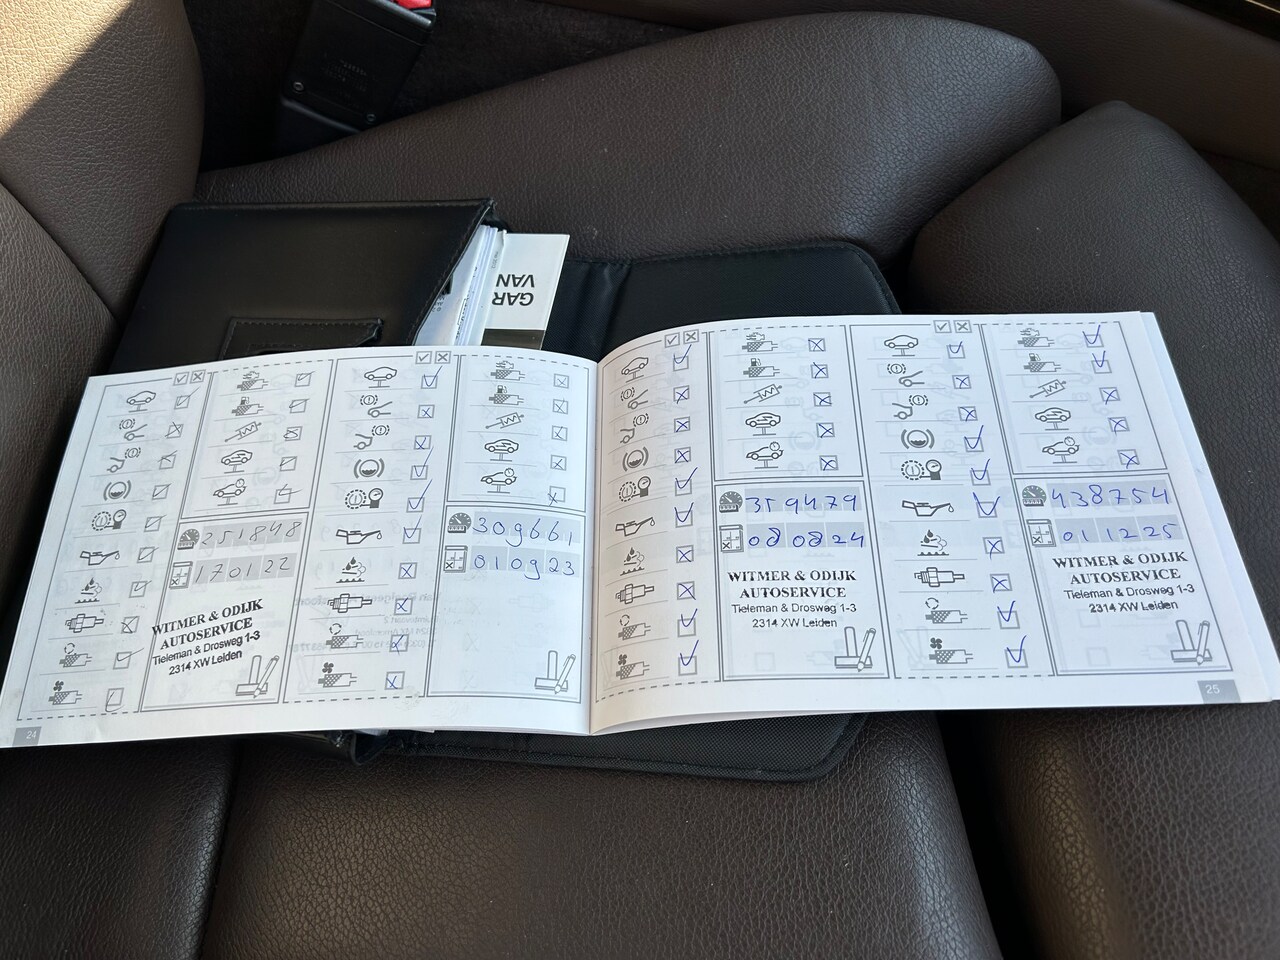 GAR
VAN
251848
170122
WITMER & ODIJK
AUTOSERVICE
Tieleman & Drosweg 1-3
2314 XW Leiden
309661
010923
24
359479
080824
WITMER & ODIJK
AUTOSERVICE
Tieleman & Drosweg 1-3
2314 XW Leiden
438754
011225
WITMER & ODIJK
AUTOSERVICE
Tieleman & Drosweg 1-3
2314 XW Leiden
25